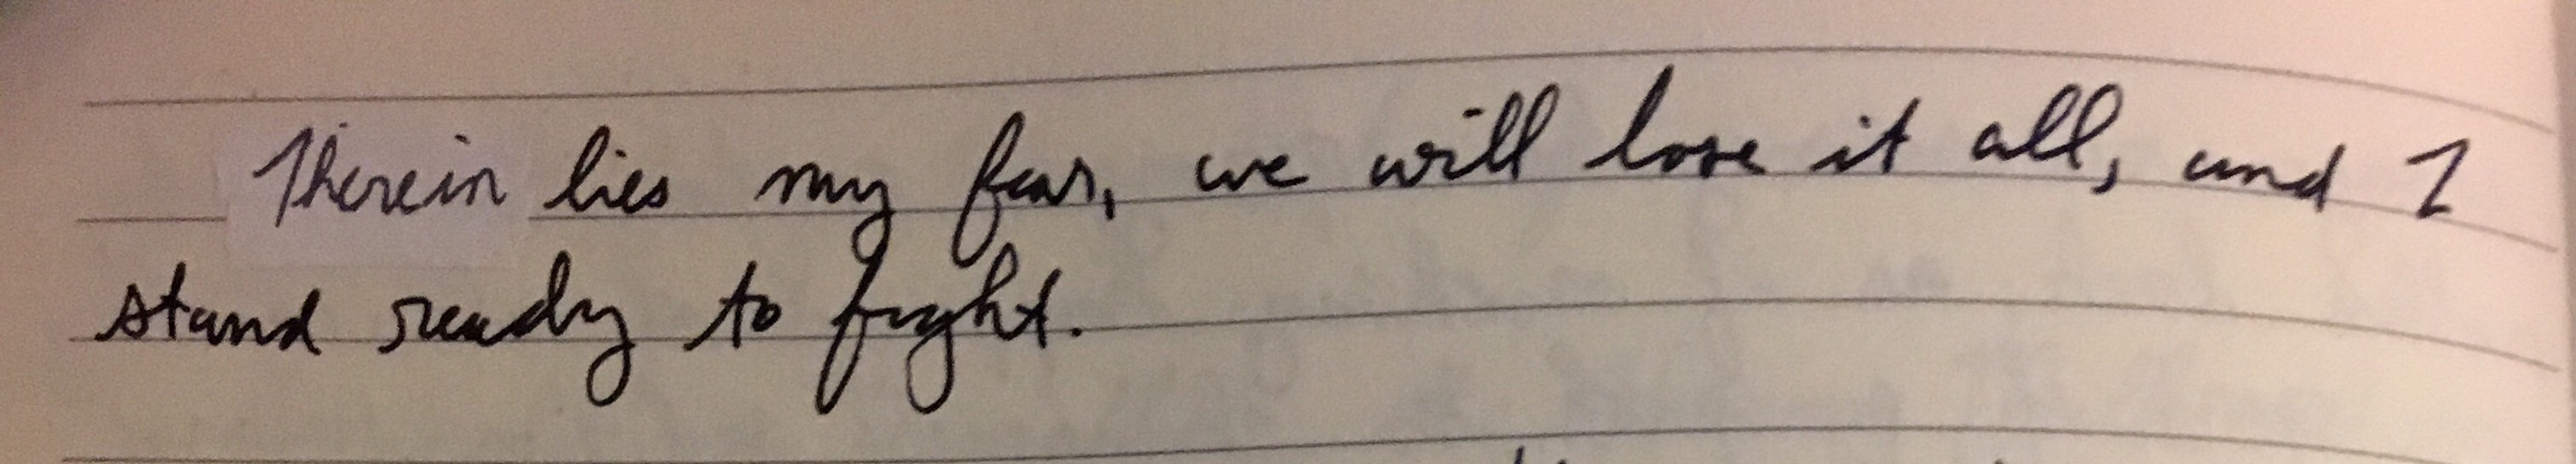 Therein lies my fear, we will lose it all, and I
stand ready to fight.